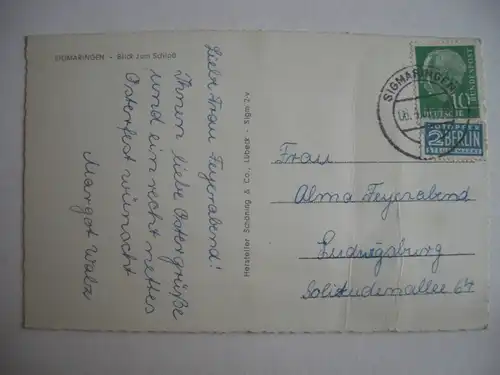 SIGMARINGEN - Blick zum Schloß
Liebe Frau Feyerabend!
Ihnen liebe Ostergrüße
und ein recht nettes
Osterfest wünscht
Margot Walz
Hersteller Schöning & Co., Lübeck - Sigm 2v
SIGMARINGEN
10
DEUTSCHE BUNDESPOST
NOTOPFER
2 BERLIN
STEUERMARKE
Frau
Alma Feyerabend
Ludwigsburg
Solitudenallee 64